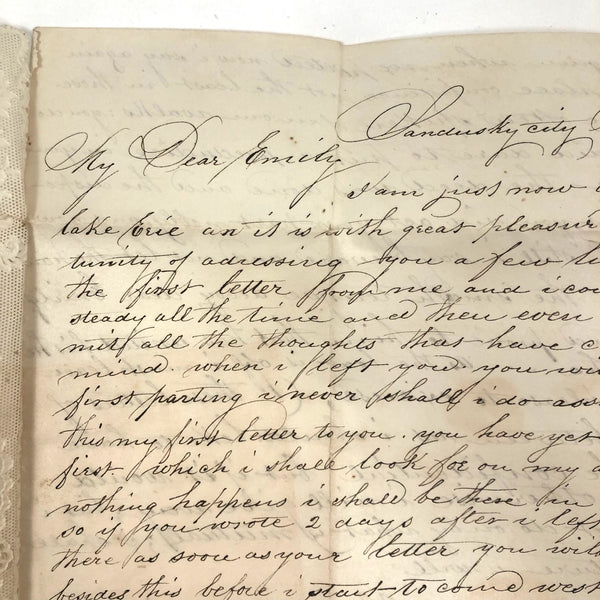 Sandusky city
My Dear Emily
I am just now
lake Erie an it is with great pleasur
tunity of adressing you a few li
the first letter from me and i cou
steady all the time and then even
mit all the thoughts that have c
mind. when i left you. you wi
first parting i never shall i do ass
this my first letter to you. you have yet
first which i shall look for on my a
nothing happens i shall be there in
so if you wrote 2 days after i left
there as soon as your letter you wil
besides this before i start to come west